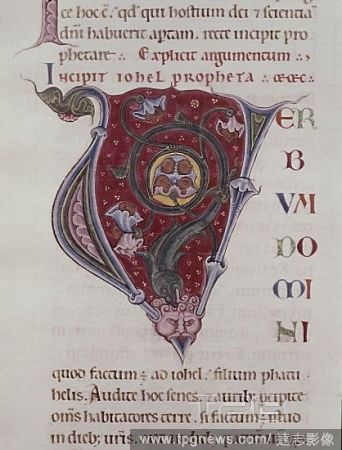 ce hoc ē. qd' qui hostium dei & scientia
dñi habuerit aptam. recte incipit pro
phetare. Explicit argumentum.
Incipit iohel propheta.
VER
B
VM
DO
MI
NI
quod factum ē ad iohel. filium phatu
helis. Audite hoc senes. & aurib; pcipite
om̄s habitatores terre. si factum ē istud
in dieb; ur̄is.
www.tpgnews.com/達志影像